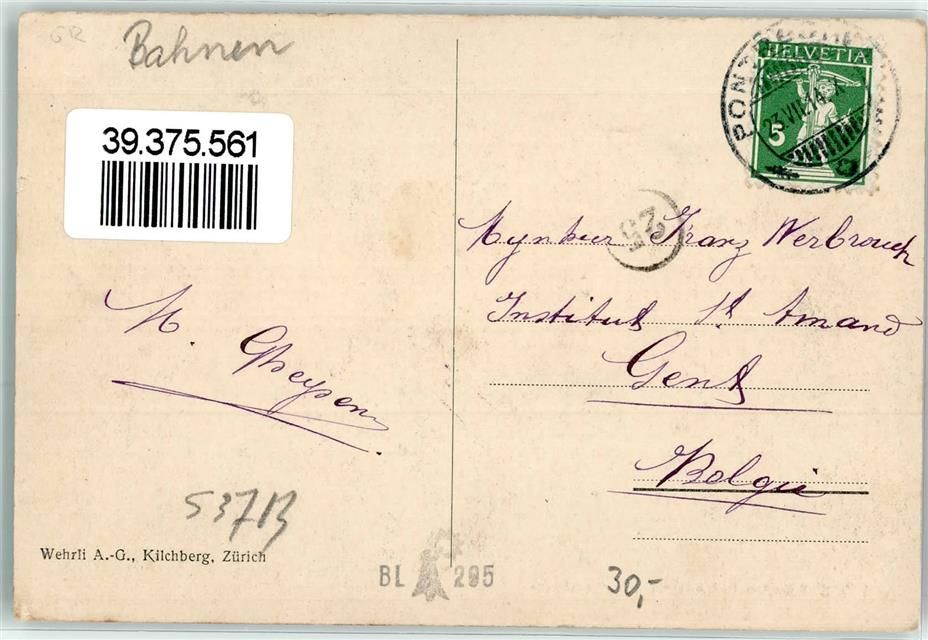 GR
Bahnen
39.375.561
HELVETIA
5
PONTRESINA
23.VII.14
25
Mynheer Franz Verbrouck
Institut St Amand
Gent
Belgie
M. Gheysen
537B
Wehrli A.-G., Kilchberg, Zürich
BL 295
30,-